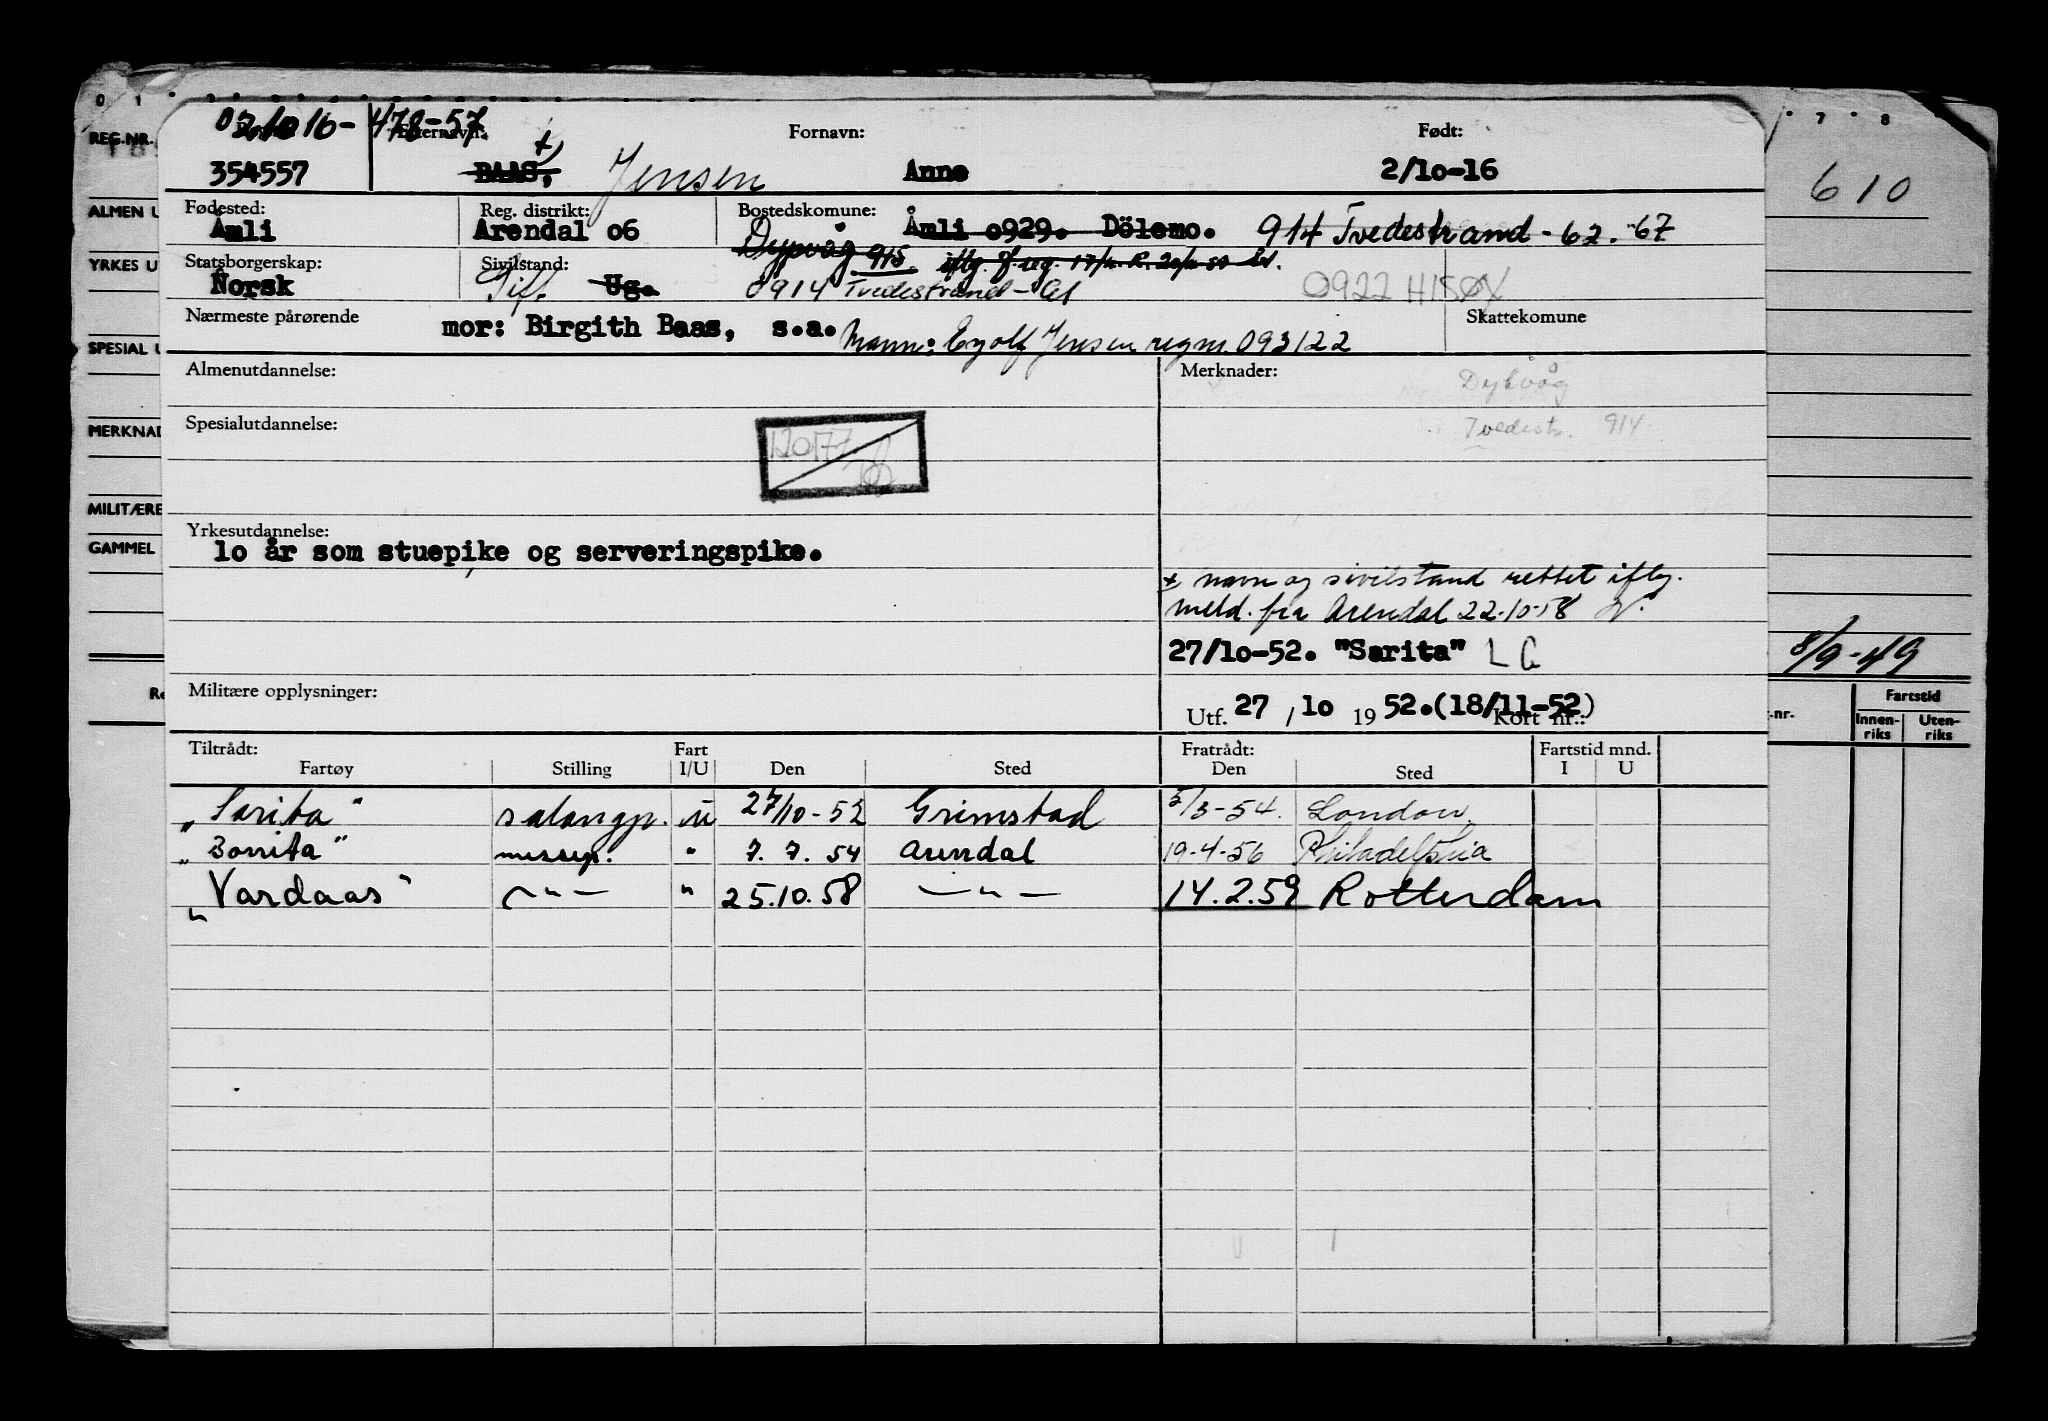 0 1 7 8
021016-478-57
REG.NR. Etternavn: Fornavn: Født:
354557 BAAS, x) Jensen Anne 2/10-16
610
ALMEN U
Fødested: Reg. distrikt: Bostedskomune:
Åmli Arendal 06 Åmli 0929. Dölemo. 914 Tvedestrand - 62. -67
Dypvåg 915
YRKES U
Statsborgerskap: Sivilstand:
Norsk Gif. Ug. 0914 Tvedestrand - 0922 HISØY
Nærmeste pårørende mor: Birgith Baas, s.a. Mann: Eyolf Jensen regnr. 093122 Skattekomune
SPESIAL U
Almenutdannelse: Merknader: Dybvåg
MERKNAD
Spesialutdannelse: Tvedestr. 914
12077
MILITÆRE
GAMMEL
Yrkesutdannelse:
10 år som stuepike og serveringspike.
x navn og sivilstand rettet iflg.
meld. fra Arendal 22-10-58
27/10-52. "Sarita" L
8/9-49
Militære opplysninger:
Utf. 27/10 1952.(18/11-52) Kort nr.:
Tiltrådt: Fart Fratrådt: Fartstid mnd.
Fartøy Stilling I/U Den Sted Den Sted I U
-nr. Fartstid
Innen-riks Uten-riks
"Sarita" salongp. u 27/10-52 Grimstad 5/3-54. London.
"Bonita" messep. " 7. 7. 54 Arendal 19-4-56 Philadelphia
"Vardaas" — " — " 25.10.58 — " — 14.2.59 Rotterdam